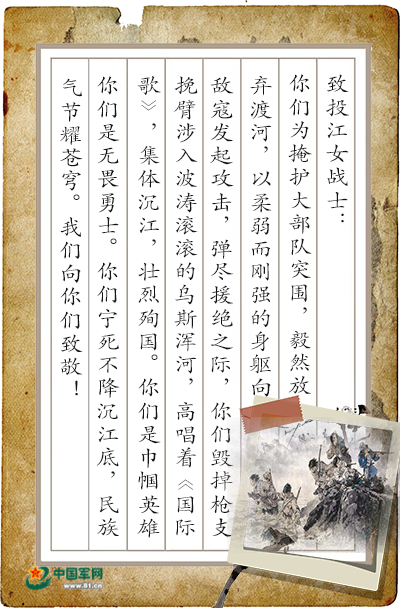 致投江女战士：
你们为掩护大部队突围，毅然放
弃渡河，以柔弱而刚强的身躯向
敌寇发起攻击，弹尽援绝之际，你们毁掉枪支
挽臂涉入波涛滚滚的乌斯浑河，高唱着《国际
歌》，集体沉江，壮烈殉国。你们是巾帼英雄
你们是无畏勇士。你们宁死不降沉江底，民族
气节耀苍穹。我们向你们致敬！
中国军网
www.81.cn